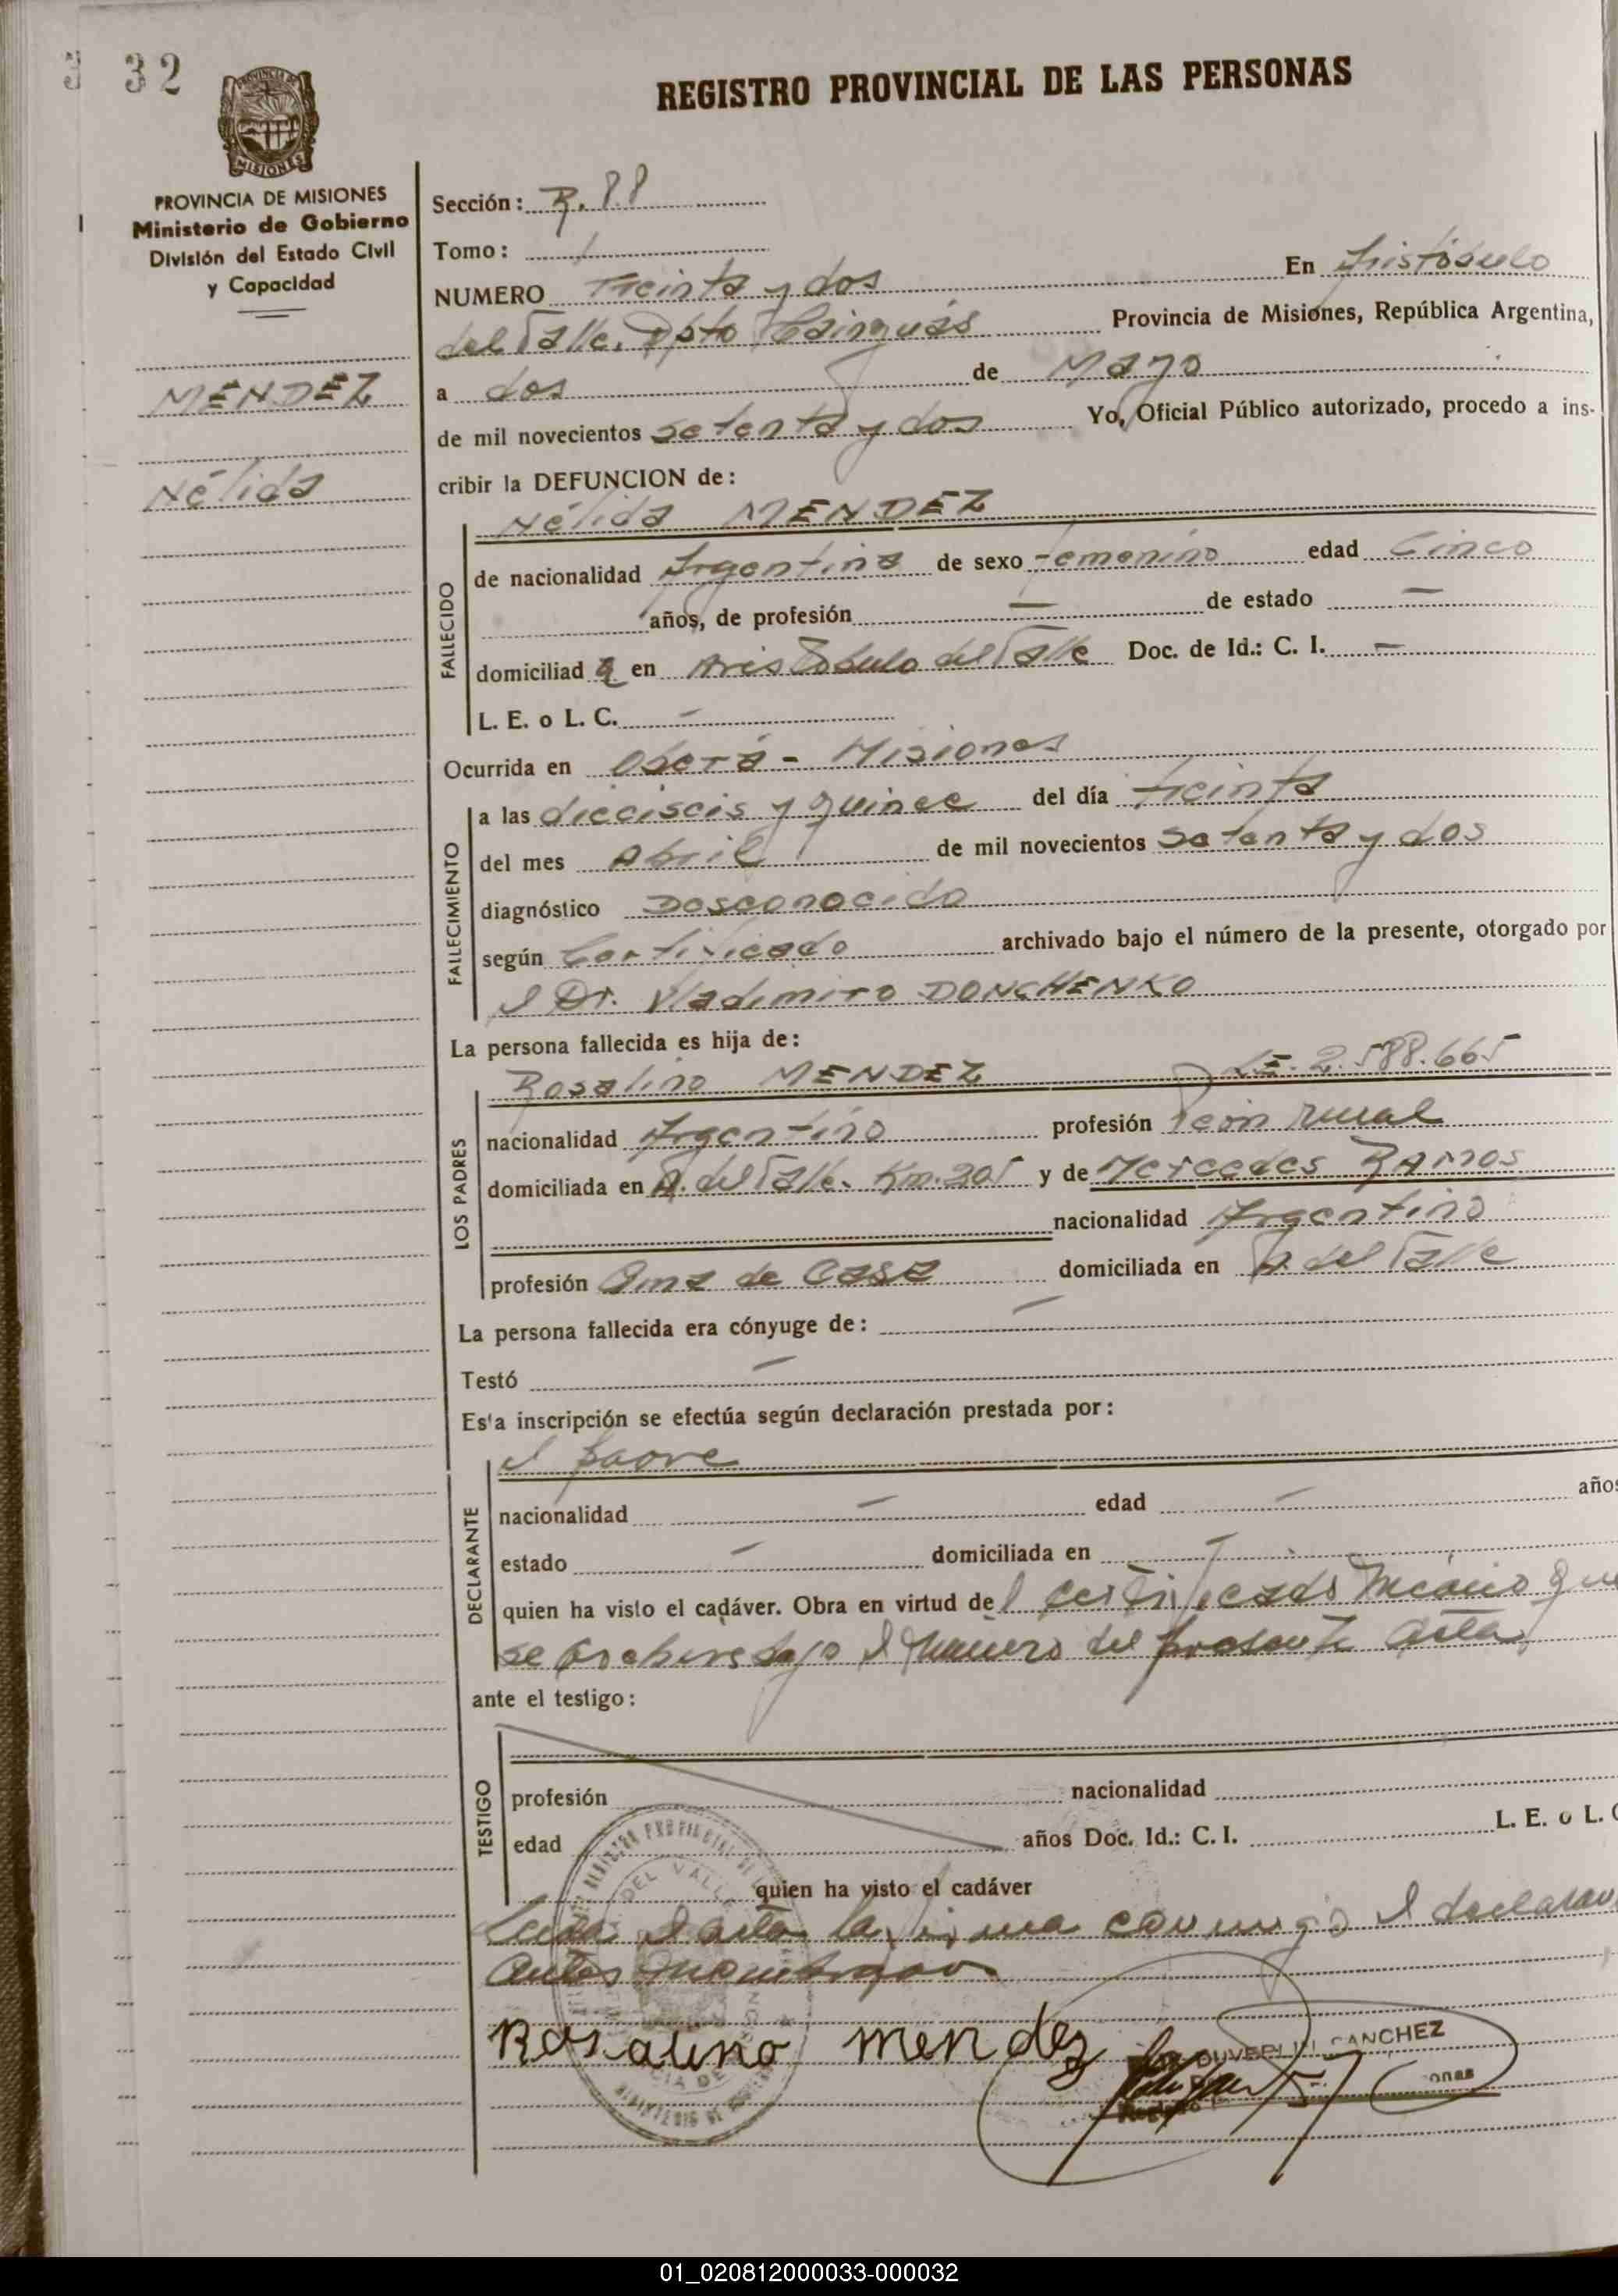 32
REGISTRO PROVINCIAL DE LAS PERSONAS
MISIONES
PROVINCIA DE MISIONES
Ministerio de Gobierno
División del Estado Civil
y Capacidad
MENDEZ
Nélida
Sección: R. P.P
Tomo: /
NUMERO Treinta y dos En Aristóbulo
del Valle. Dpto Cainguás Provincia de Misiones, República Argentina,
a dos de Mayo
de mil novecientos setenta y dos Yo, Oficial Público autorizado, procedo a ins-
cribir la DEFUNCION de:
Nélida MENDEZ
FALLECIDO
de nacionalidad Argentina de sexo femenino edad Cinco
años, de profesión — de estado —
domiciliad a en Aristóbulo del Valle Doc. de Id.: C. I. —
L. E. o L. C. —
Ocurrida en Oberá - Misiones
FALLECIMIENTO
a las dieciseis y quince del día treinta
del mes Abril de mil novecientos setenta y dos
diagnóstico Desconocido
según Certificado archivado bajo el número de la presente, otorgado por
el Dr. Vladimiro DONCHENKO
La persona fallecida es hija de:
Rosalino MENDEZ LE. 2.588.665
LOS PADRES
nacionalidad Argentino profesión Peón rural
domiciliada en A. del Valle. Km. 205 y de Mercedes RAMOS
nacionalidad Argentina
profesión Ama de Casa domiciliada en A. del Valle
La persona fallecida era cónyuge de: —
Testó —
Es'a inscripción se efectúa según declaración prestada por:
el padre
DECLARANTE
nacionalidad — edad — años
estado — domiciliada en —
quien ha visto el cadáver. Obra en virtud de l certificado médico que
se archiva bajo el número del presente acta
ante el testigo:
TESTIGO
profesión nacionalidad
edad años Doc. Id.: C. I. L. E. o L. C
quien ha visto el cadáver
Leida el acta la firma conmigo el declaran
Rosalino mendez
SANCHEZ
01_020812000033-000032